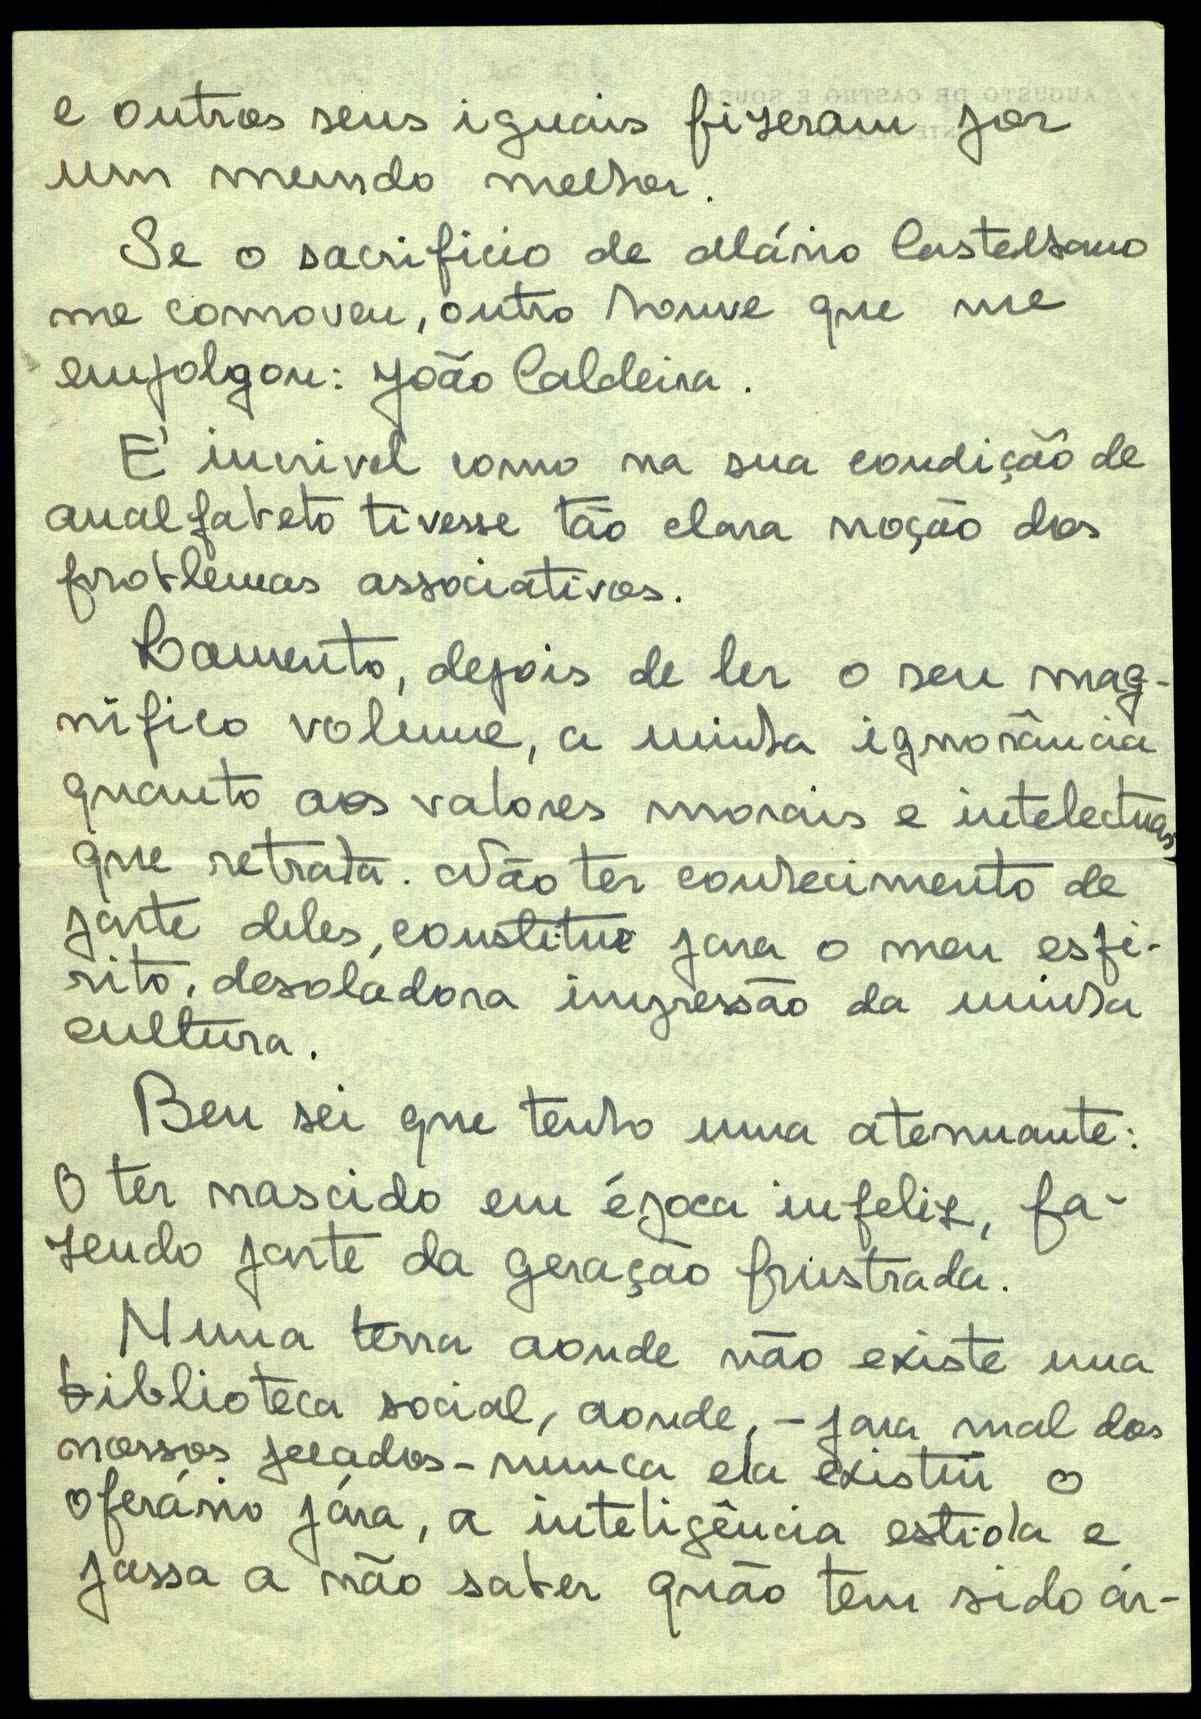 e outros seus iguais fizeram por
um mundo melhor.
Se o sacrificio de Mário Castelhano
me comoveu, outro houve que me
empolgou: João Caldeira.
E' incrivel como na sua condição de
analfabeto tivesse tão clara noção dos
problemas associativos.
Lamento, depois de ler o seu mag-
nífico volume, a minha ignorância
quanto aos valores morais e intelectuais
que retrata. Não ter conhecimento de
parte deles, constitue para o meu espi-
rito, desoladora impressão da minha
cultura.
Bem sei que tenho uma atenuante:
O ter nascido em época infeliz, fa-
zendo parte da geração frustrada.
Numa terra aonde não existe uma
biblioteca social, aonde, - para mal dos
nossos pecados - nunca ela existiu o
operário pára, a inteligência estiola e
passa a não saber quão tem sido ár-